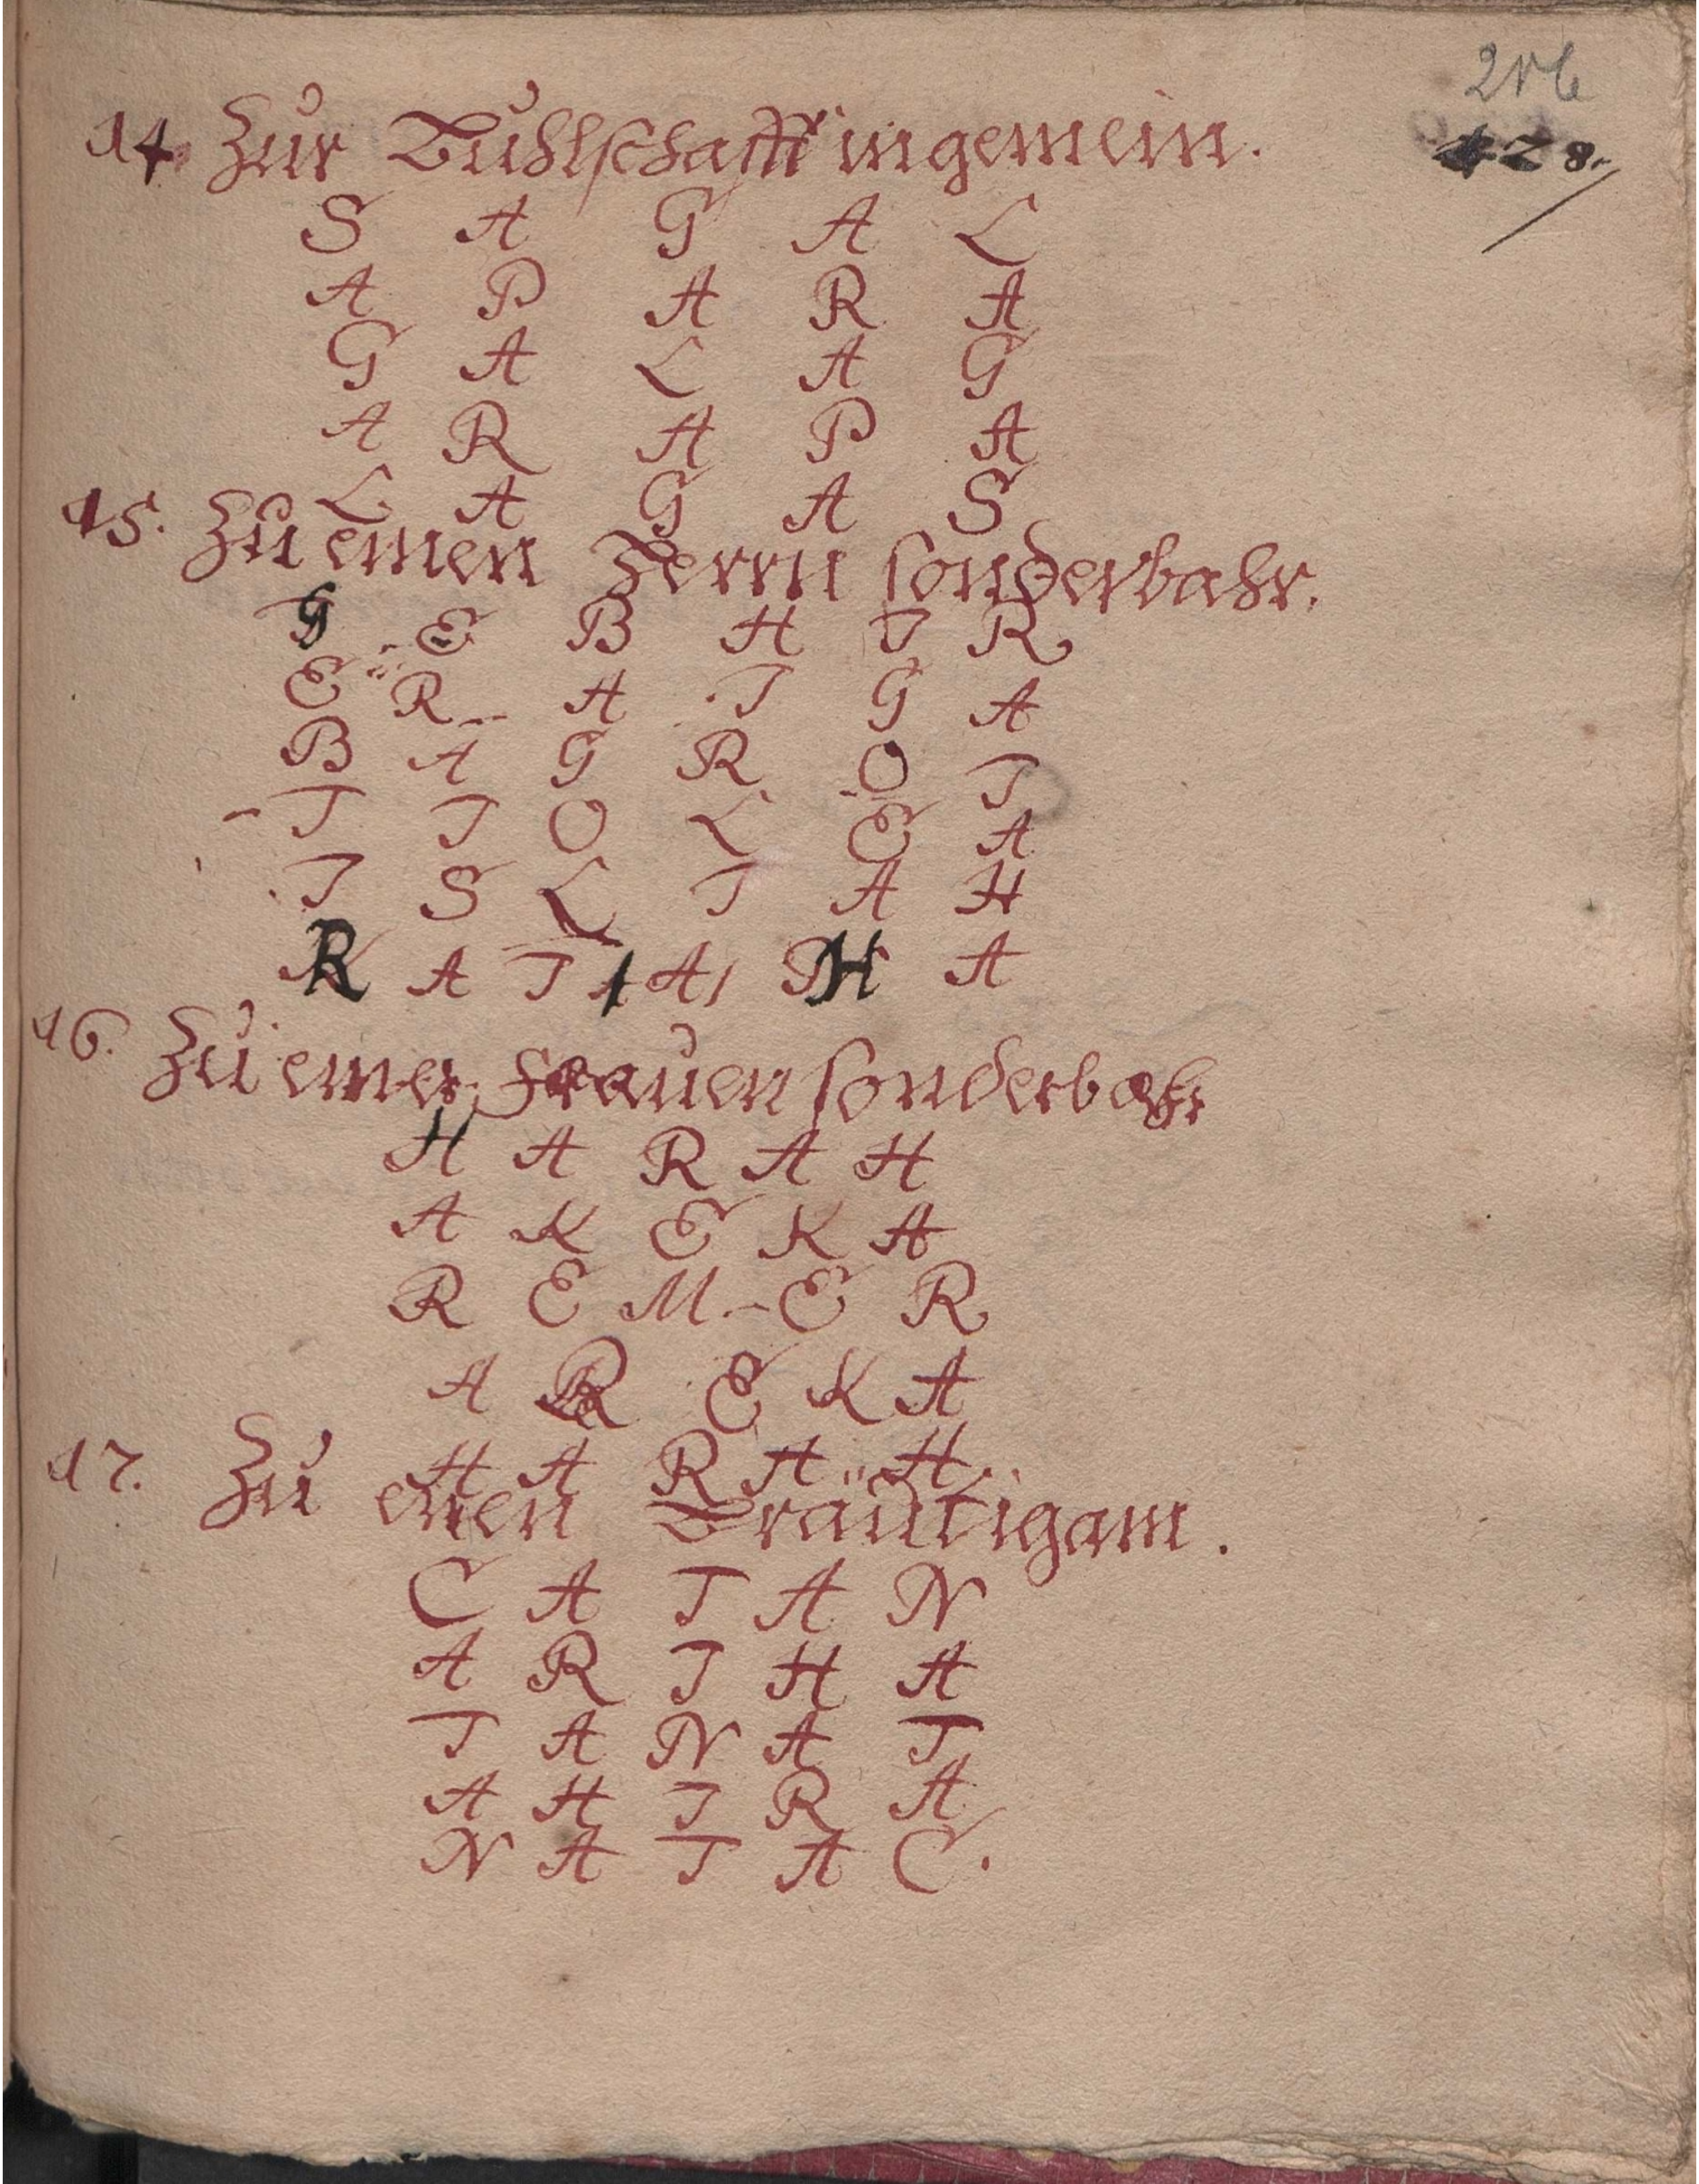 216
128.
14. Zur Buhlschafft ingemein.
S A G A L
A P A R A
G A L A G
A R A P A
L A G A S
15. Zu einen Herrn sonderbahr.
G E B H I R
E R A I G A
B A G R O T
T T O L E A
I S L T A H
R A T A H A
16. Zu einer Frauen sonderbahr
H A R A H
A K E K A
R E M E R
A R E K A
H A R A H
17. Zu einen Bräutigam.
C A T A N
A R I H A
T A N A T
A H I R A
N A T A C.